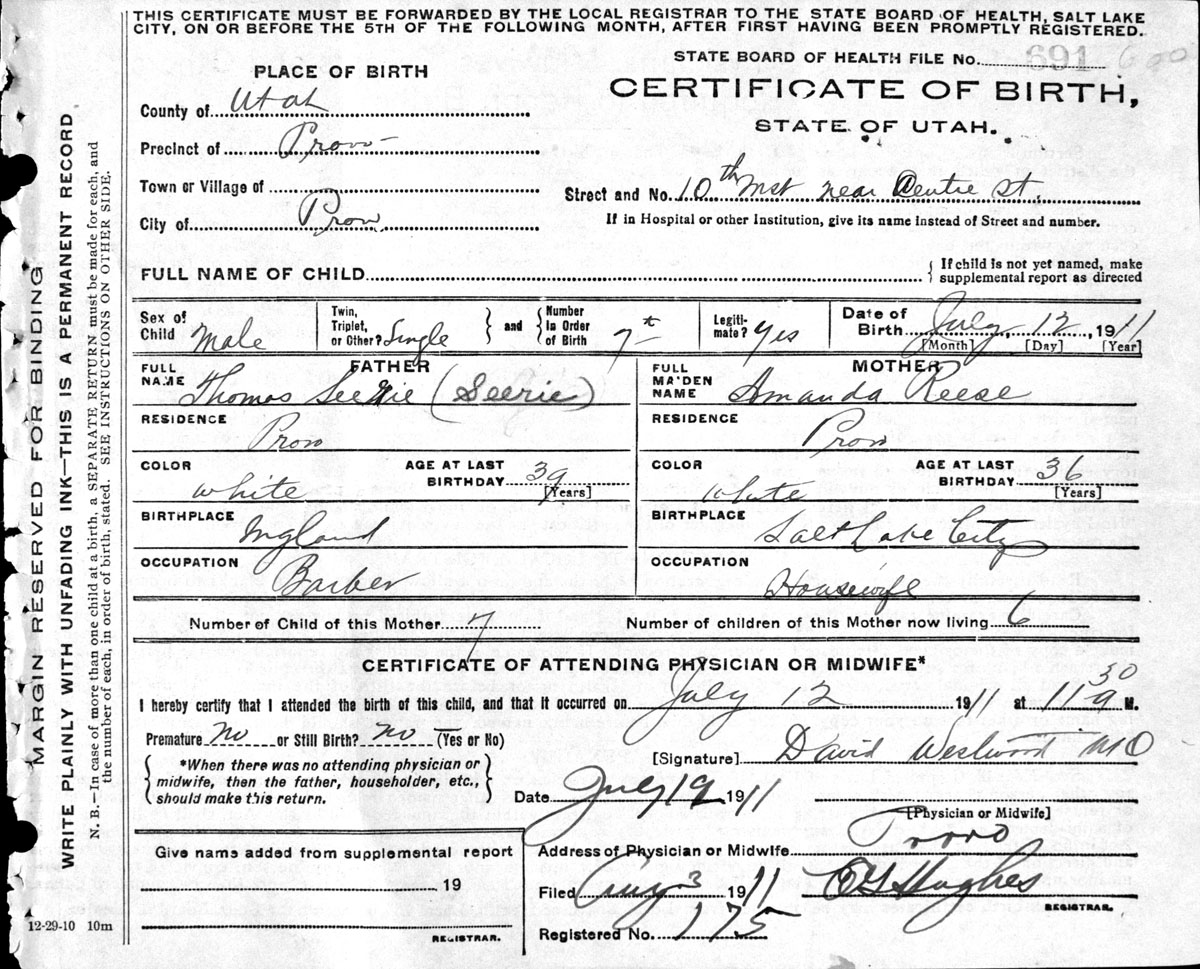 THIS CERTIFICATE MUST BE FORWARDED BY THE LOCAL REGISTRAR TO THE STATE BOARD OF HEALTH, SALT LAKE
CITY, ON OR BEFORE THE 5TH OF THE FOLLOWING MONTH, AFTER FIRST HAVING BEEN PROMPTLY REGISTERED.
STATE BOARD OF HEALTH FILE No. 691 600
PLACE OF BIRTH
CERTIFICATE OF BIRTH,
STATE OF UTAH.
County of Utah
Precinct of Provo
Town or Village of
Street and No. 10th West near Centre St
City of Provo
If in Hospital or other Institution, give its name instead of Street and number.
FULL NAME OF CHILD
{ If child is not yet named, make
supplemental report as directed
Sex of
Child Male
Twin,
Triplet,
or Other? Single
and
Number
in Order
of Birth 7th
Legiti-
mate? Yes
Date of
Birth July, 12, 1911
[Month] [Day] [Year]
FATHER
FULL
NAME Thomas Seerie (Seerie)
MOTHER
FULL
MAIDEN
NAME Amanda Reese
RESIDENCE
Provo
RESIDENCE
Provo
COLOR
white
AGE AT LAST
BIRTHDAY 39
[Years]
COLOR
white
AGE AT LAST
BIRTHDAY 36
[Years]
BIRTHPLACE
England
BIRTHPLACE
Salt Lake City
OCCUPATION
Barber
OCCUPATION
Housewife
Number of Child of this Mother 7
Number of children of this Mother now living 6
CERTIFICATE OF ATTENDING PHYSICIAN OR MIDWIFE*
I hereby certify that I attended the birth of this child, and that it occurred on July 12 1911 at 11 30 a M.
Premature No or Still Birth? No (Yes or No)
[Signature] David Westwood MD
{ *When there was no attending physician or
midwife, then the father, householder, etc.,
should make this return. }
Date July 19 1911
[Physician or Midwife]
Give name added from supplemental report
19
REGISTRAR.
Address of Physician or Midwife Provo
Filed Aug 3 1911
Hughes
REGISTRAR.
Registered No. 175
12-29-10 10m
MARGIN RESERVED FOR BINDING
WRITE PLAINLY WITH UNFADING INK—THIS IS A PERMANENT RECORD
N. B.—In case of more than one child at a birth, a SEPARATE RETURN must be made for each, and
the number of each, in order of birth, stated. SEE INSTRUCTIONS ON OTHER SIDE.